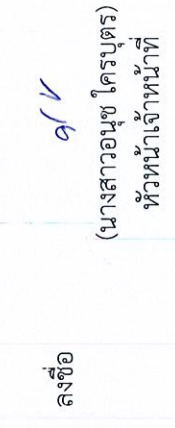 ลงชื่อ
(นางสาวอนุช ใครบุตร)
หัวหน้าเจ้าหน้าที่